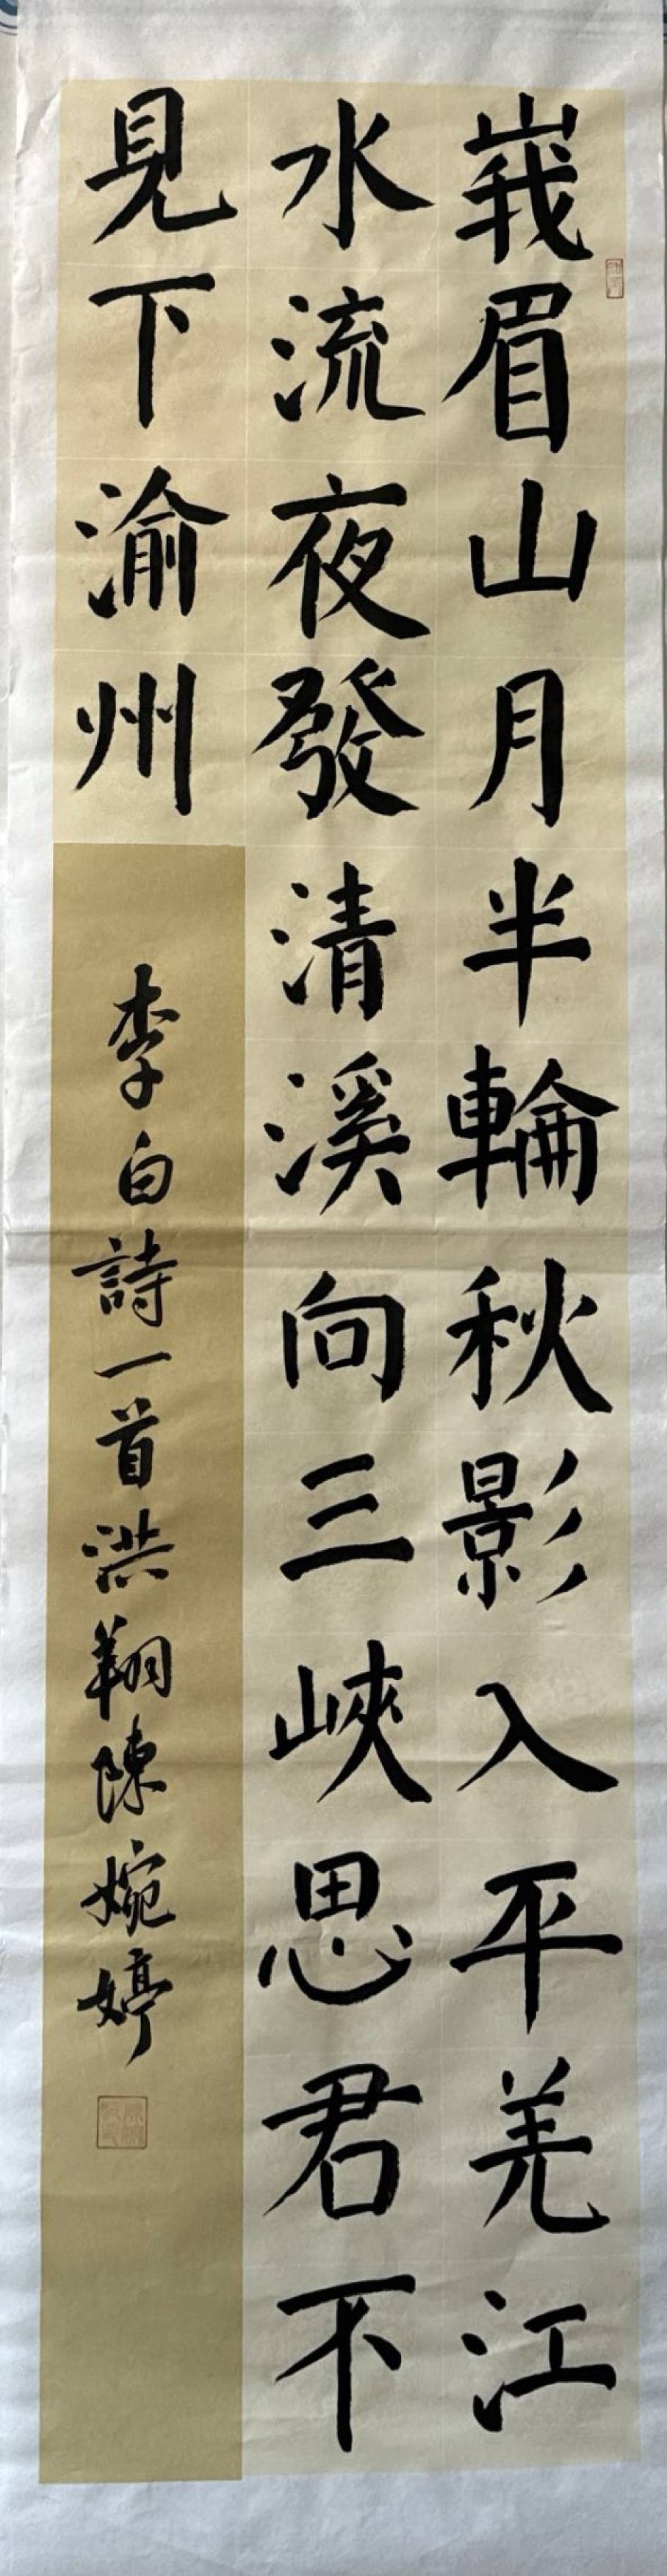 峩眉山月半輪秋影入平羌江
水流夜發清溪向三峽思君不
見下渝州
李白詩一首洪翔陳婉婷